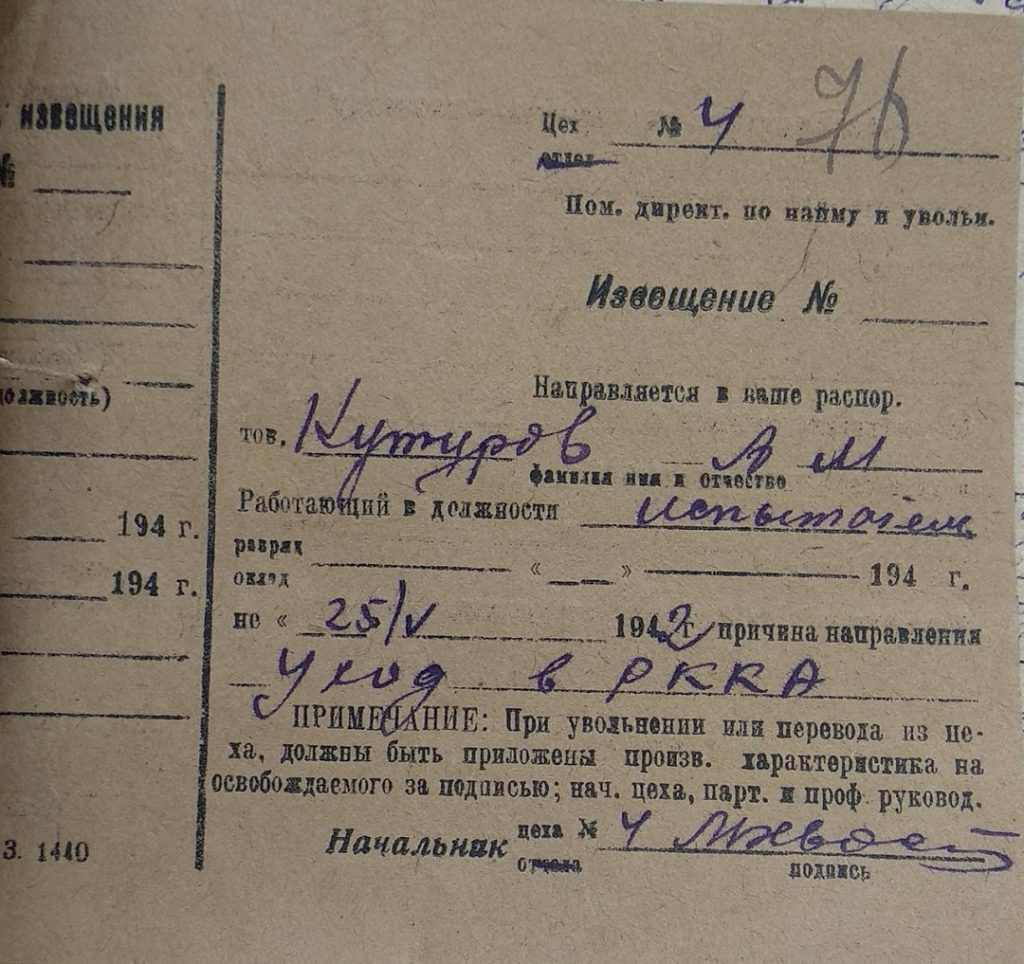 извещения
№
должность)
194 г.
194 г.
З. 1440
Цех № 4 76
отдел
Пом. директ. по найму и увольн.
Извещение №
Направляется в ваше распор.
тов. Кутуров А М
фамилия имя и отчество
Работающий в должности испытатель
разряд
оклад « » 194 г.
не « 25/V 1942 г. причина направления
Уход в РККА
ПРИМЕЧАНИЕ: При увольнении или перевода из це-
ха, должны быть приложены произв. характеристика на
освобождаемого за подписью; нач. цеха, парт. и проф. руковод.
Начальник цеха № 4
отдела
подпись